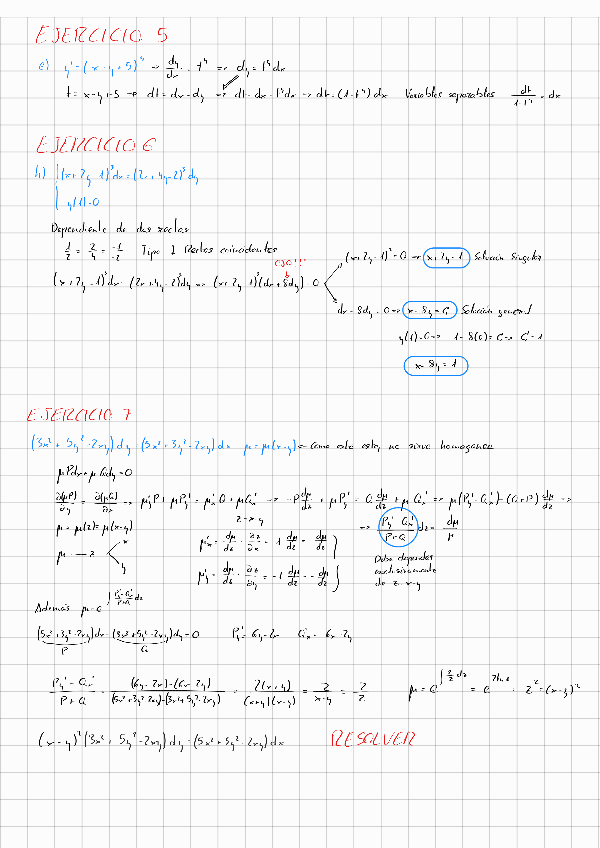 EJERCICIO 5
e) y' = (x-y+5)⁴ → dy/dx = t⁴ ⇒ dy = t⁴dx
t = x-y+5 → dt = dx-dy ⇒ dt = dx - t⁴dx → dt = (1-t⁴)dx Variables separables dt/(1-t⁴) = dx
EJERCICIO 6
h) { (x+2y-1)³dx = (2x+4y-2)³dy
y(1)=0
Dependiente de dos rectas
1/2 = 2/4 = -1/-2 Tipo I Rectas coincidentes
OJO!!!
(x+2y-1)³dx - (2x+4y-2)³dy ⇒ (x+2y-1)³(dx+8dy) = 0
(x+2y-1)³=0 → x+2y=1 Solución Singular
dx-8dy=0 → x-8y=C Solución general
y(1)=0 → 1-8(0)=C → C=1
x-8y=1
EJERCICIO 7
(3x²+5y²-2xy)dy = (5x²+3y²-2xy)dx μ=μ(x-y) → Como este es no sirve homogenea
μPdx+μQdy=0
∂(μP)/∂y = ∂(μQ)/∂x → μ'yP+μP'y = μ'xQ+μQ'x → -P dμ/dz + μP'y = Q dμ/dz + μQ'x ⇒ μ(P'y-Q'x)=(Q+P)dμ/dz ⇒
μ=μ(z)=μ(x-y)
z=x-y
⇒ (P'y-Q'x)/(P+Q) dz = dμ/μ
μ — z < x y
μ'x = dμ/dz · ∂z/∂x = 1 dμ/dz = dμ/dz
μ'y = dμ/dz · ∂z/∂y = -1 dμ/dz = -dμ/dz
Debe depender
exclusivamente
de z=x-y
Además μ=e^∫(P'y-Q'x)/(P+Q) dz
(5x²+3y²-2xy)dx-(3x²+5y²-2xy)dy=0 P'y=6y-2x Q'x=-6x+2y
P Q
(P'y-Q'x)/(P+Q) = (6y-2x)-(-6x+2y)/(5x²+3y²-2xy)-(3x²+5y²-2xy) = 2(x+y)/(x+y)(x-y) = 2/(x-y) = 2/z μ=e^∫2/z dz = e^2ln z = z² = (x-y)²
(x-y)²(3x²+5y²-2xy)dy=(5x²+3y²-2xy)dx RESOLVER